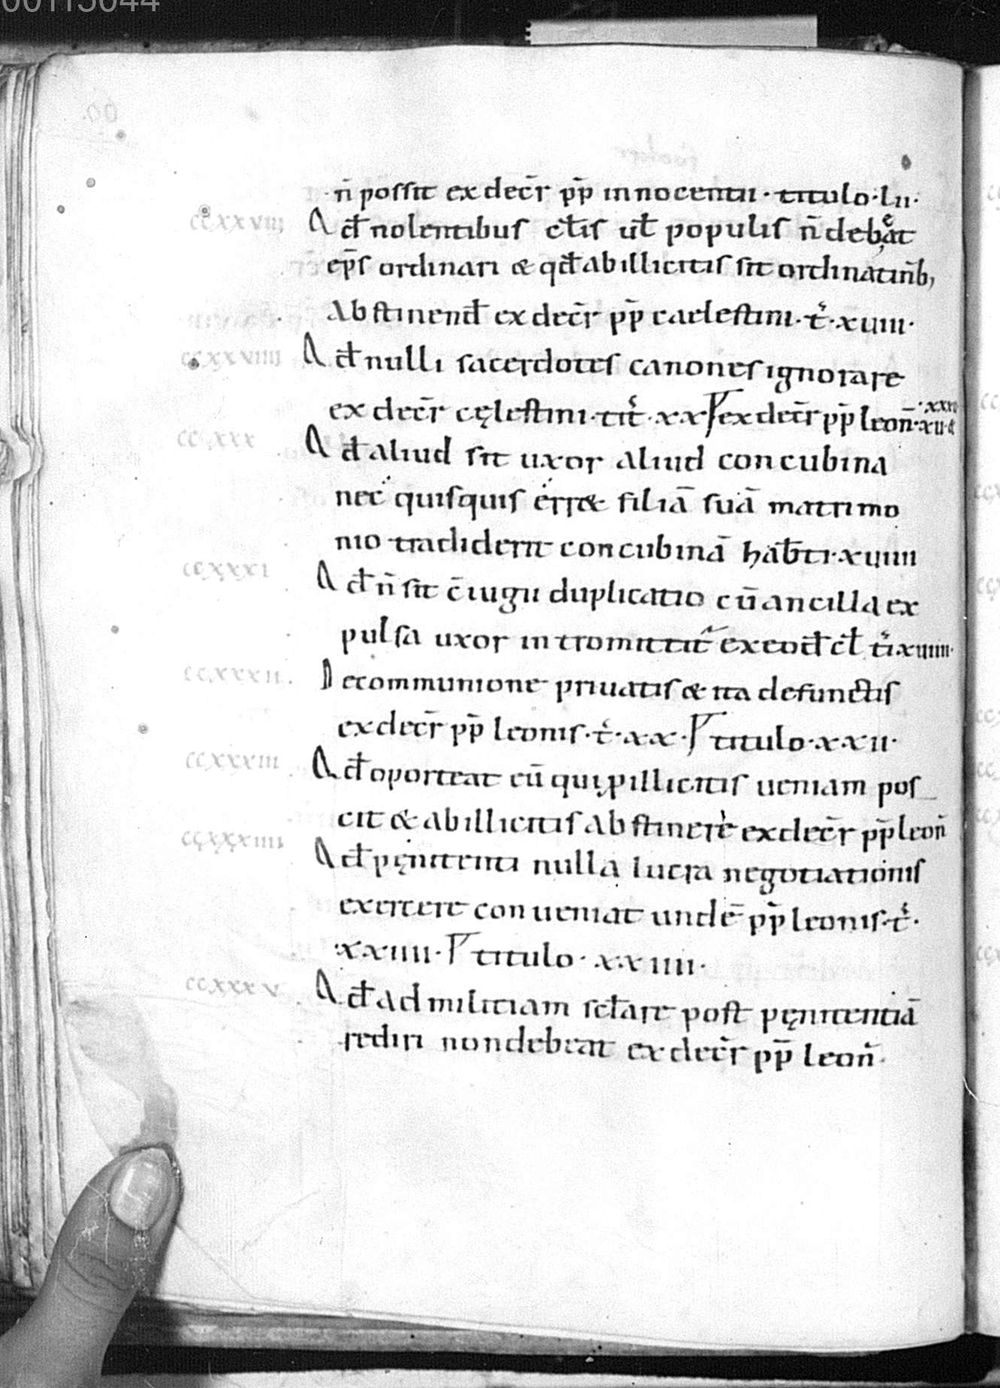 00115044
n̄ possit ex decr̄ pp̄ innocentii · titulo · lii ·
ccxxviii Qđ nolentibus clīs ut̄ populis n̄ debeat
ep̄s ordinari & qđ ab illicitis sit ordinatiōib;
abstinenđ ex decr̄ pp̄ caelestini · t̄ · xviii ·
ccxxviiii Qđ nulli sacerdotes canones ignorare
ex decr̄ cęlestini · tit̄ · xx ex decr̄ pp̄ leon̄ ·
ccxxx Qđ aliud sit uxor aliud concubina
nec quisquis erret filiā suā matrimo
nio tradiderit concubinā hab̄ ti · xviiii
ccxxxi Qđ n̄ sit c̄iugii duplicatio cū ancilla ex
pulsa uxor intromittit̄ ex eođ
ccxxxii. De communione priuatis & ita defunctis
ex decr̄ pp̄ leonis · t̄ · xx · titulo · xxii ·
ccxxxiii Qđ oporteat eū qui p illicitis ueniam pos
cit & ab illicitis abstinere ex decr̄ pp̄ leon̄
ccxxxiiii Qđ pęnitenti nulla lucra negotiationis
exercere conueniat unde pp̄ leonis · t̄ ·
xxiiii · titulo · xxiiii ·
ccxxxv Qđ ad militiam sc̄larē post pęnitentiā
rediri non debeat ex decr̄ pp̄ leon̄ ·